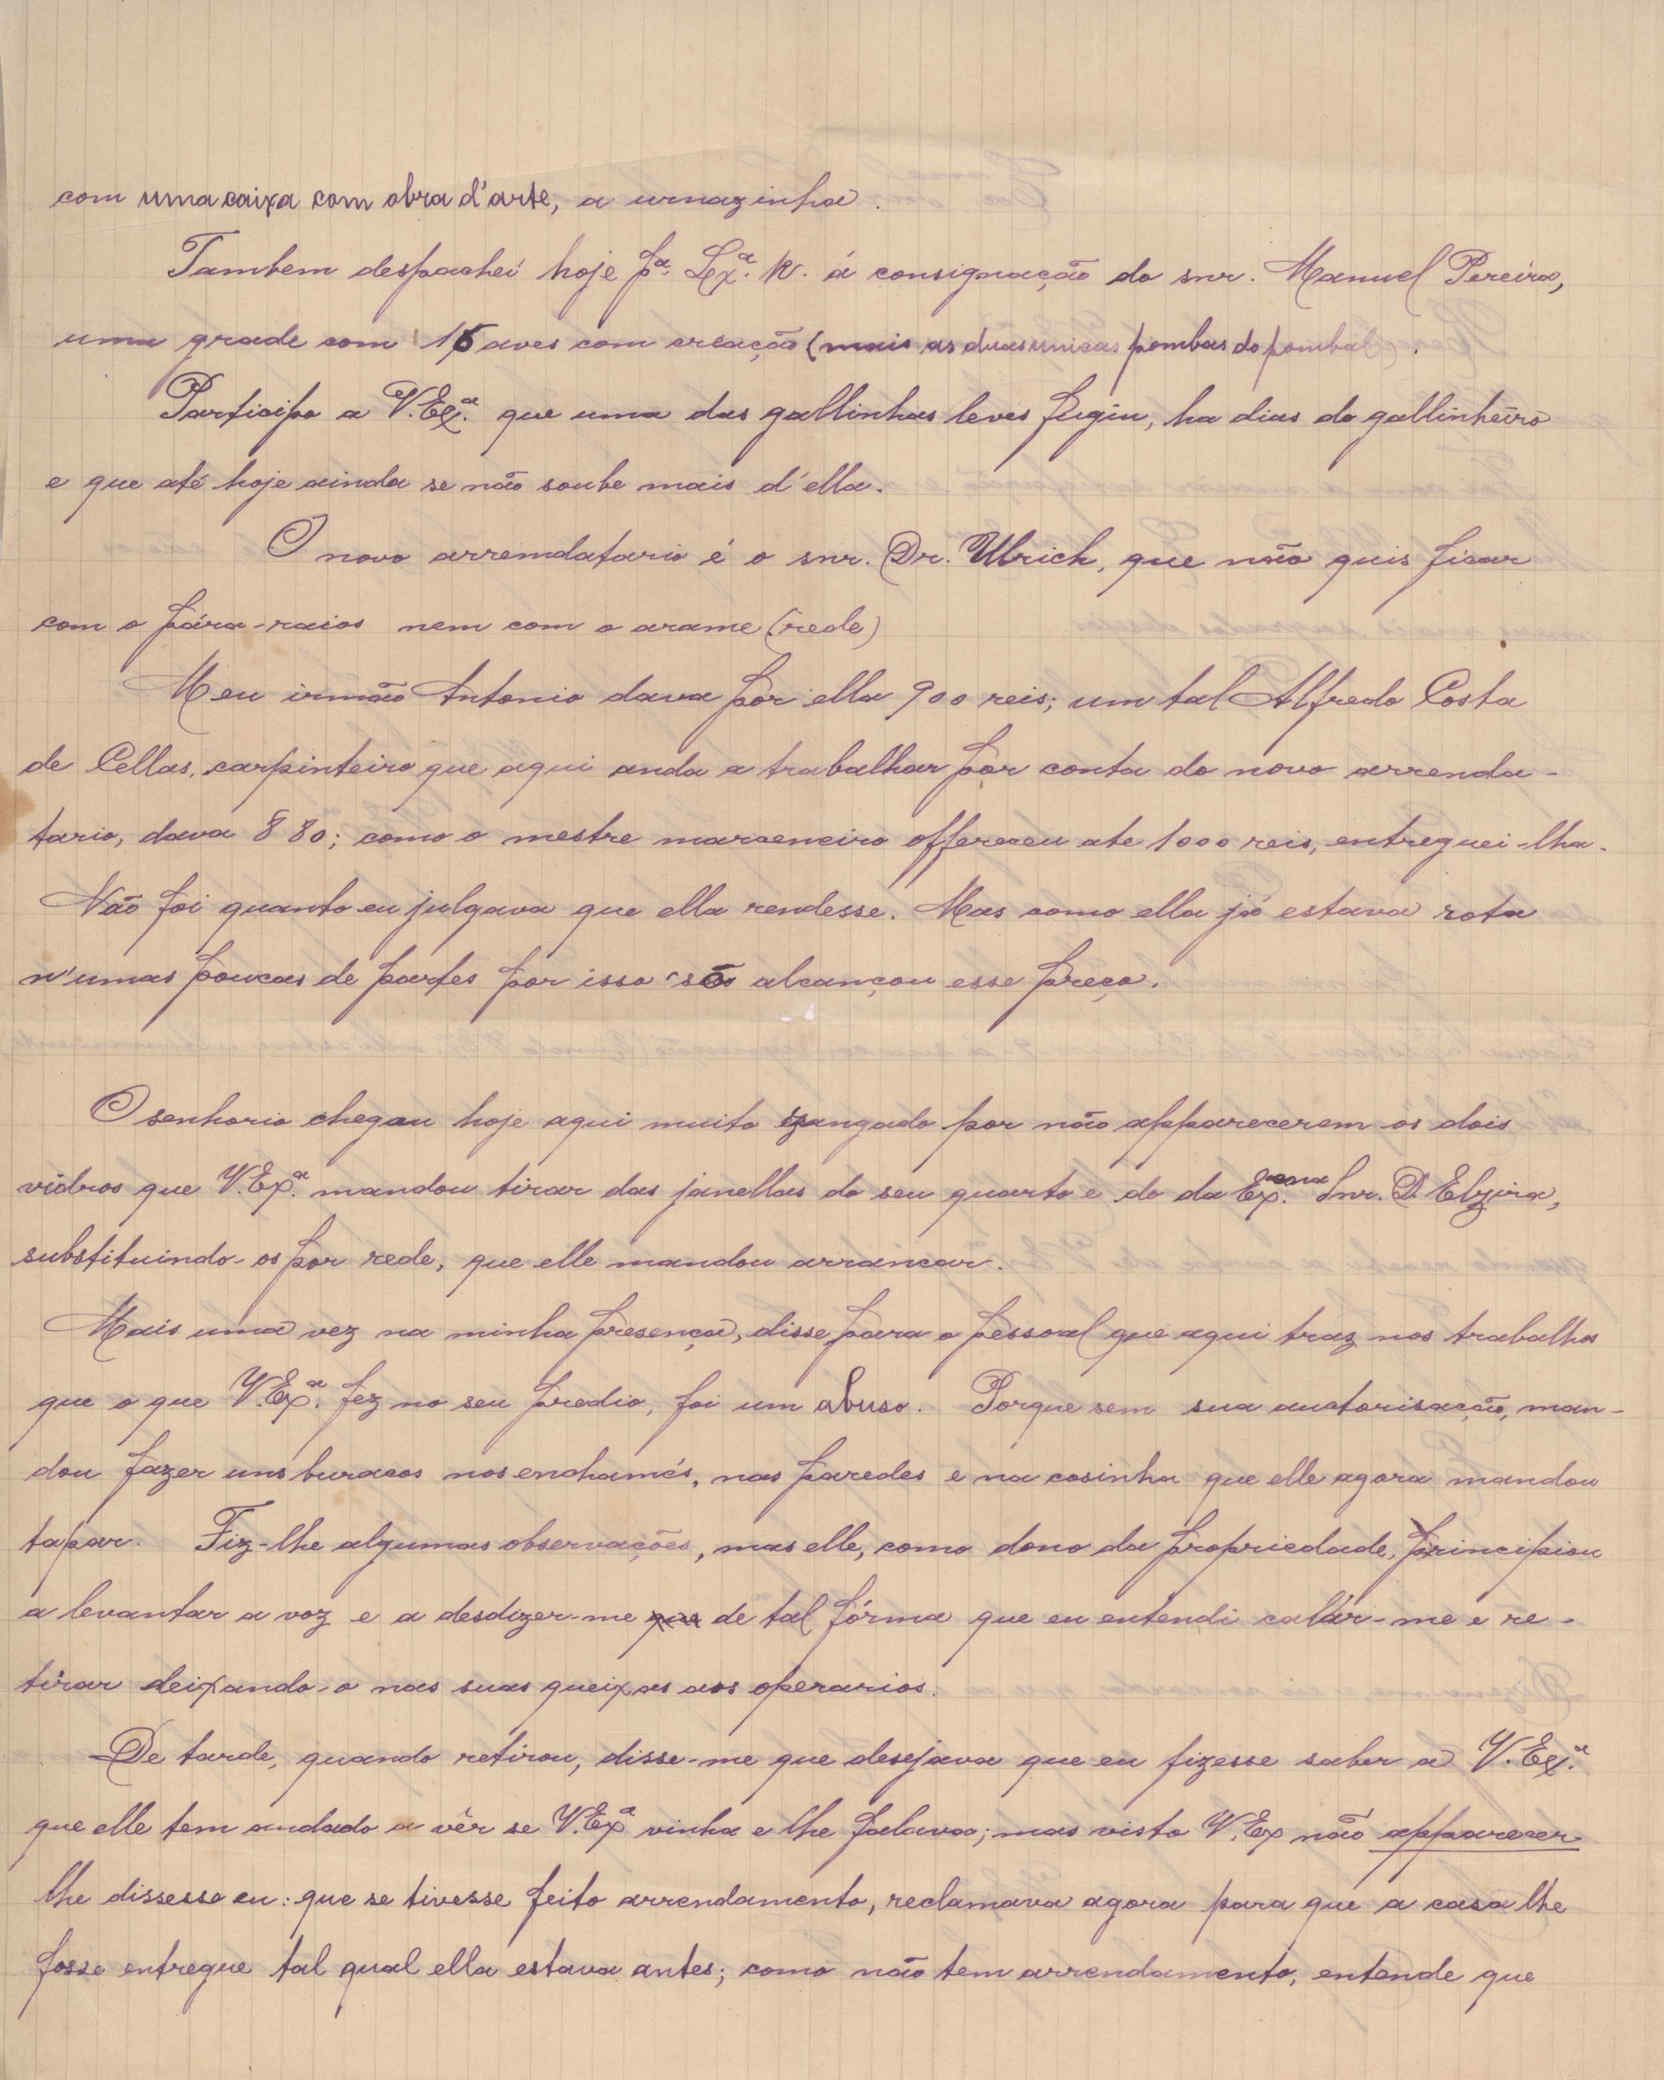 com uma caixa com obra d'arte, a urnazinha.
Tambem despachei hoje pª. Lxª. R. á consignação do snr. Manuel Pereira,
uma grade com 16 aves com creação (mais as duas unicas pombas do pombal).
Participo a V. Exª. que uma das gallinhas leves fugiu, ha dias do gallinheiro
e que até hoje ainda se não soube mais d'ella.
O novo arremdatario é o snr. Dr. Ulrich, que não quis ficar
com o pára-raios nem com o arame (rede)
Meu irmão Antonio dava por ella 900 reis; um tal Alfredo Costa
de Cellas, carpinteiro que aqui anda a trabalhar por conta do novo arrenda-
tario, dava 880; como o mestre marceneiro offereceu ate 1000 reis, entreguei-lha.
Não foi quanto eu julgava que ella rendesse. Mas como ella já estava rota
n'umas poucas de partes por isso só alcançou esse preço.
O senhorio chegou hoje aqui muito zangado por não apparecerem os dois
vidros que V. Exª. mandou tirar das janellas do seu quarto e do da Ex.ma Snr. D. Elzira,
substituindo-os por rede, que elle mandou arrancar.
Mais uma vez na minha presença, disse para o pessoal que aqui traz nos trabalhos
que o que V. Exª. fez no seu predio, foi um abuso. Porque sem sua auctorisacção, man-
dou fazer uns buracos nos enchamés, nas paredes e na cosinha que elle agora mandou
tapar. Fiz-lhe algumas observações, mas elle, como dono da propriedade, principiou
a levantar a voz e a desdizer-me de tal fórma que eu entendi calár-me e re-
tirar deixando-o nas suas queixas aos operarios.
De tarde, quando retirou, disse-me que desejava que eu fizesse saber a V. Exª.
que elle tem andado a vêr se V. Exª vinha e lhe falava; mas visto V. Ex não apparecer
lhe dissesse eu: que se tivesse feito arrendamento, reclamava agora para que a casa lhe
fosse entregue tal qual ella estava antes; como não tem arrendamento, entende que